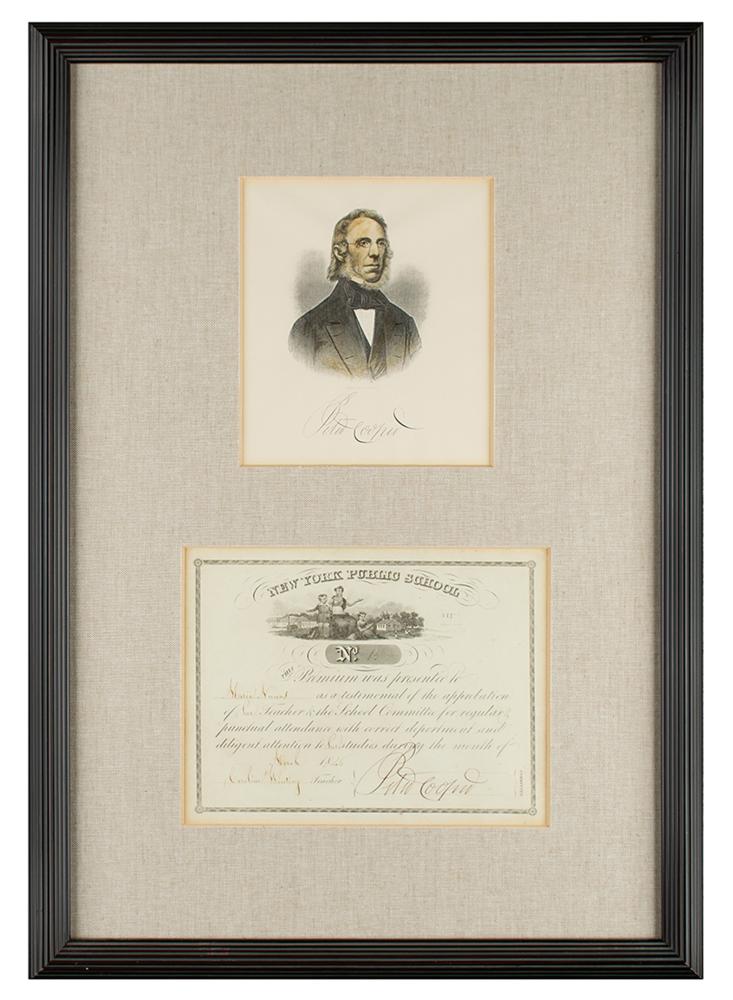 Peter Cooper
NEW YORK PUBLIC SCHOOL
No.
THIS Premium was presented to
as a testimonial of the approbation
of her Teacher & the School Committee for regular &
punctual attendance with correct deportment and
diligent attention to her studies during the month of
March 18
Caroline Whiting Teacher Peter Cooper